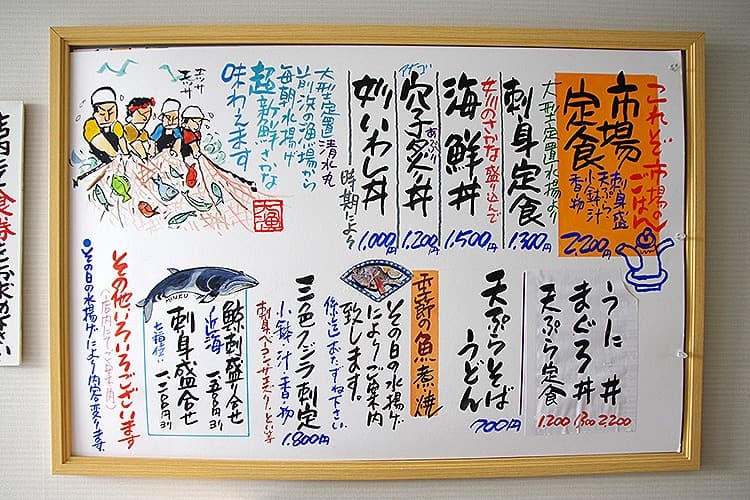 これぞ市場のごはん
市場定食
刺身盛
天ぷら
小鉢汁
香の物
2,200円
大型定置水揚より
刺身定食
1,300円
女川のさかな盛り込んで
海鮮丼
1,500円
穴子炙り丼
あぶり
1,200円
いわし丼
時期により
1,000円
大型定置清水丸
前浜の漁場から
毎朝水揚げ
超新鮮さかな
味わえます
エッサ
エッサ
大漁
うに丼
2,200
まぐろ丼
1,300
天ぷら定食
1,200
天ぷらそば
うどん
700円
季節の魚煮・焼
その日の水揚げ
によりご案内
致します。
係迄おたずね下さい
三色クジラ刺定
小鉢汁・香の物
1,800円
鯨刺盛り合せ
近海
刺身盛合せ
その他いろいろございます
(店内にてご案内)
●その日の水揚げにより内容変ります